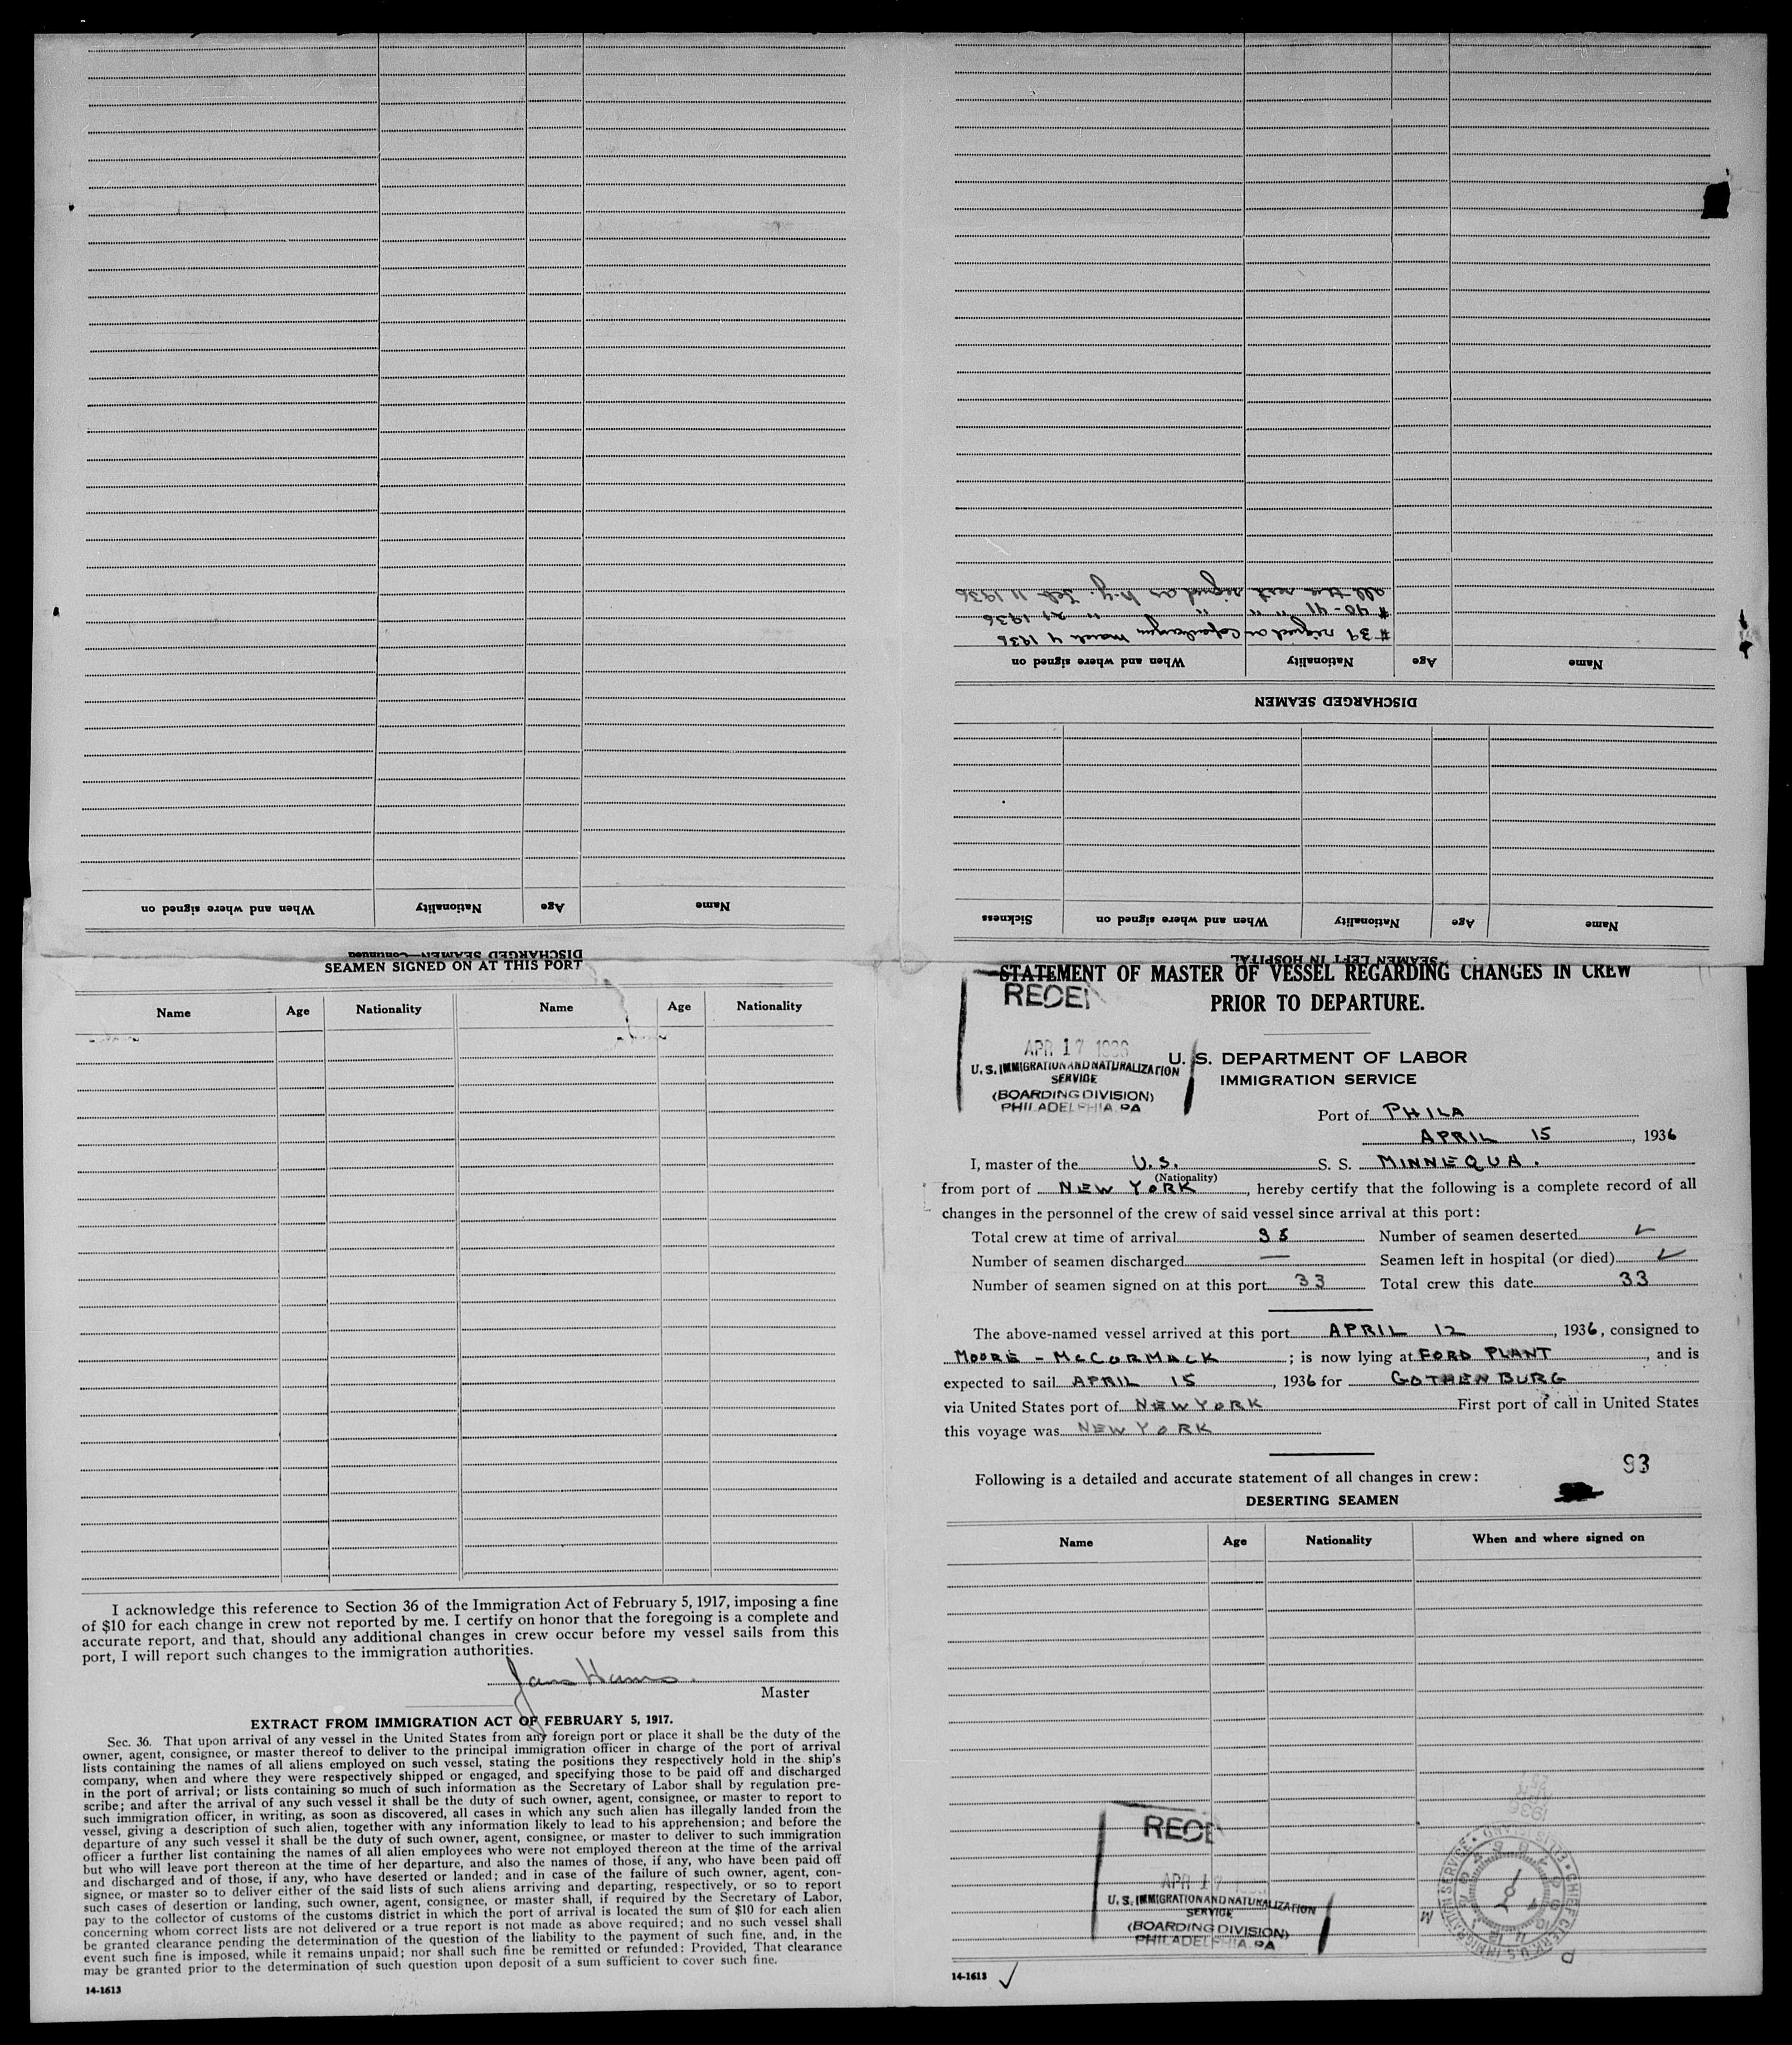 DISCHARGED SEAMEN—Continued
Name Age Nationality When and where signed on
SEAMEN LEFT IN HOSPITAL
Name Age Nationality When and where signed on Sickness
DISCHARGED SEAMEN
Name Age Nationality When and where signed on
# 39 signed on Copenhagen March 4 1936
# 40-41 " " " " 21 1936
all the rest signed on N.Y. Feb 11 1936
SEAMEN SIGNED ON AT THIS PORT
Name Age Nationality Name Age Nationality
I acknowledge this reference to Section 36 of the Immigration Act of February 5, 1917, imposing a fine
of $10 for each change in crew not reported by me. I certify on honor that the foregoing is a complete and
accurate report, and that, should any additional changes in crew occur before my vessel sails from this
port, I will report such changes to the immigration authorities.
Master
EXTRACT FROM IMMIGRATION ACT OF FEBRUARY 5, 1917.
Sec. 36. That upon arrival of any vessel in the United States from any foreign port or place it shall be the duty of the
owner, agent, consignee, or master thereof to deliver to the principal immigration officer in charge of the port of arrival
lists containing the names of all aliens employed on such vessel, stating the positions they respectively hold in the ship's
company, when and where they were respectively shipped or engaged, and specifying those to be paid off and discharged
in the port of arrival; or lists containing so much of such information as the Secretary of Labor shall by regulation pre-
scribe; and after the arrival of any such vessel it shall be the duty of such owner, agent, consignee, or master to report to
such immigration officer, in writing, as soon as discovered, all cases in which any such alien has illegally landed from the
vessel, giving a description of such alien, together with any information likely to lead to his apprehension; and before the
departure of any such vessel it shall be the duty of such owner, agent, consignee, or master to deliver to such immigration
officer a further list containing the names of all alien employees who were not employed thereon at the time of the arrival
but who will leave port thereon at the time of her departure, and also the names of those, if any, who have been paid off
and discharged and of those, if any, who have deserted or landed; and in case of the failure of such owner, agent, con-
signee, or master so to deliver either of the said lists of such aliens arriving and departing, respectively, or so to report
such cases of desertion or landing, such owner, agent, consignee, or master shall, if required by the Secretary of Labor,
pay to the collector of customs of the customs district in which the port of arrival is located the sum of $10 for each alien
concerning whom correct lists are not delivered or a true report is not made as above required; and no such vessel shall
be granted clearance pending the determination of the question of the liability to the payment of such fine, and, in the
event such fine is imposed, while it remains unpaid; nor shall such fine be remitted or refunded: Provided, That clearance
may be granted prior to the determination of such question upon deposit of a sum sufficient to cover such fine.
14-1613
STATEMENT OF MASTER OF VESSEL REGARDING CHANGES IN CREW
PRIOR TO DEPARTURE.
RECEI
APR 17 1936
U. S. IMMIGRATION AND NATURALIZATION
SERVICE
(BOARDING DIVISION)
PHILADELPHIA, PA
U. S. DEPARTMENT OF LABOR
IMMIGRATION SERVICE
Port of PHILA
APRIL 15, 1936
I, master of the U.S. S. S. MINNEQUA.
(Nationality)
from port of NEW YORK, hereby certify that the following is a complete record of all
changes in the personnel of the crew of said vessel since arrival at this port:
Total crew at time of arrival Number of seamen deserted ✓
Number of seamen discharged — Seamen left in hospital (or died) ✓
Number of seamen signed on at this port 33 Total crew this date 33
The above-named vessel arrived at this port APRIL 12, 1936, consigned to
MOORE - McCORMACK; is now lying at FORD PLANT, and is
expected to sail APRIL 15, 1936 for GOTHENBURG
via United States port of NEW YORK First port of call in United States
this voyage was NEW YORK
93
Following is a detailed and accurate statement of all changes in crew:
DESERTING SEAMEN
Name Age Nationality When and where signed on
RECE
APR 17
U. S. IMMIGRATION AND NATURALIZATION
SERVICE
(BOARDING DIVISION)
PHILADELPHIA, PA
14-1613 ✓